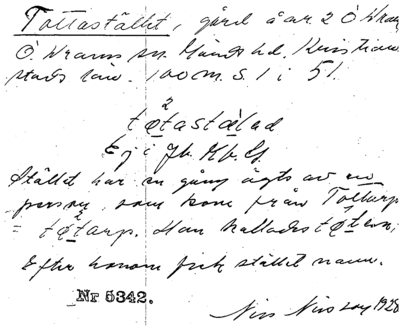 Tottastället, gård å ar. 2 Ö. Wram,
Ö. Wrams sn. Gärds hd. Kristian-
stads län. 100 m. S. 1 i 51.
tø̀tastä̀lad
Ej i Jb. Kb. G.
Stället har en gång ägts av en
person, som kom från Tottarp
= tø̀tarp. Han kallades tø̀ten;
Efter honom fick stället namn.
Nr 5342.
Nils 1928